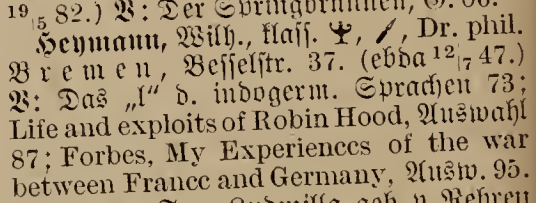 19|5 82.) V: Der Springbrunnen,
Heymann, Wilh., klass. Dr. phil.
Bremen, Besselstr. 37. (ebda 12|7 47.)
V: Das „l“ d. indogerm. Sprachen 73;
Life and exploits of Robin Hood, Auswahl
87; Forbes, My Experiences of the war
between France and Germany, Ausw. 95.